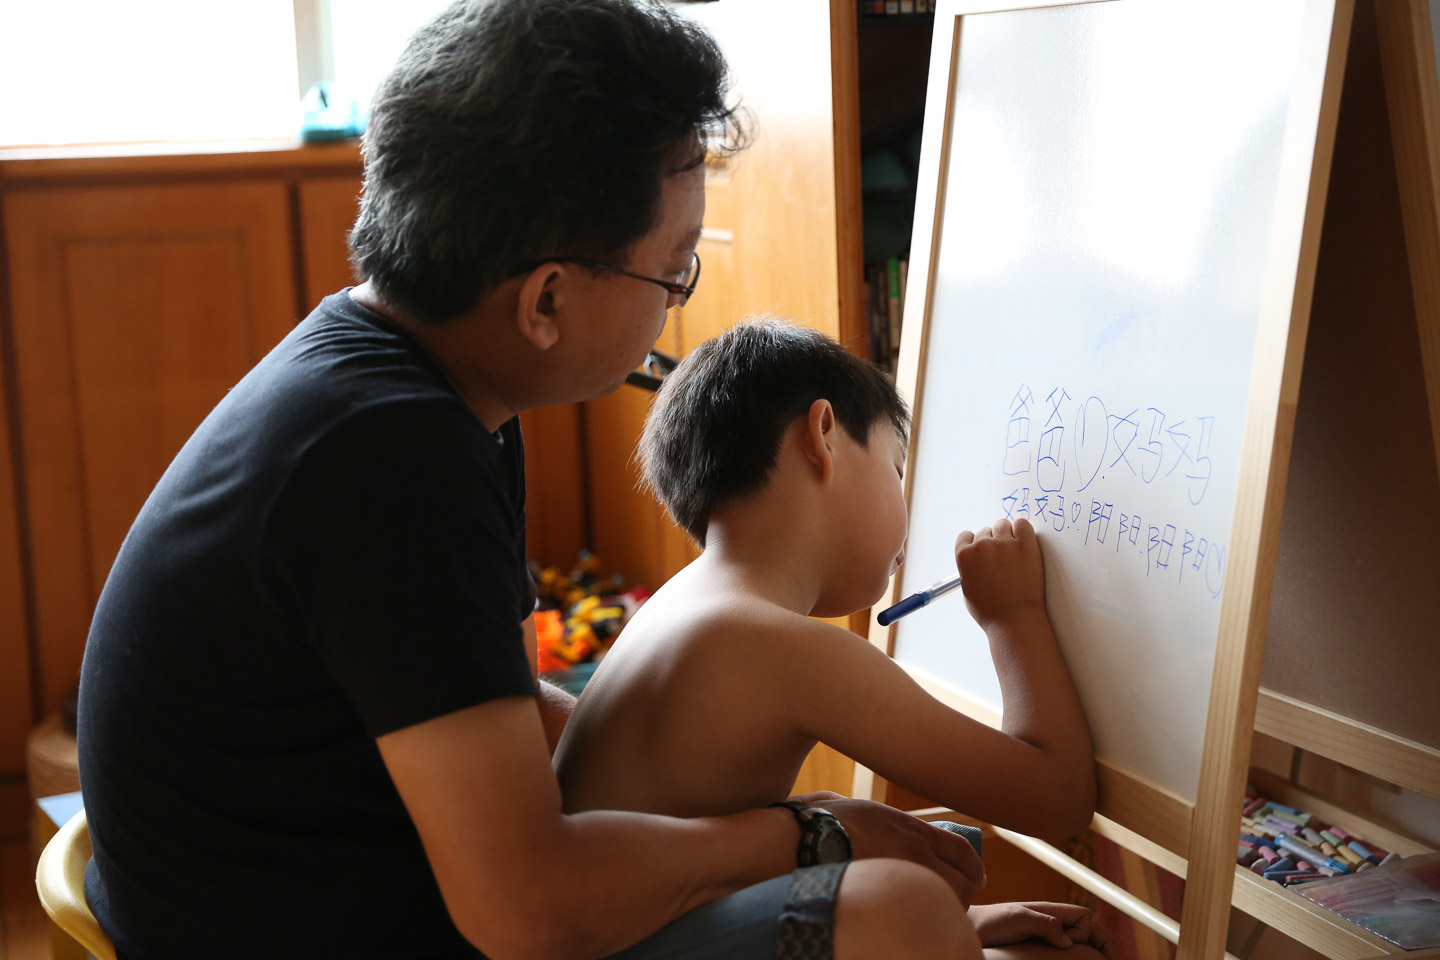 爸爸♡妈妈
妈妈♡阳阳阳阳♡